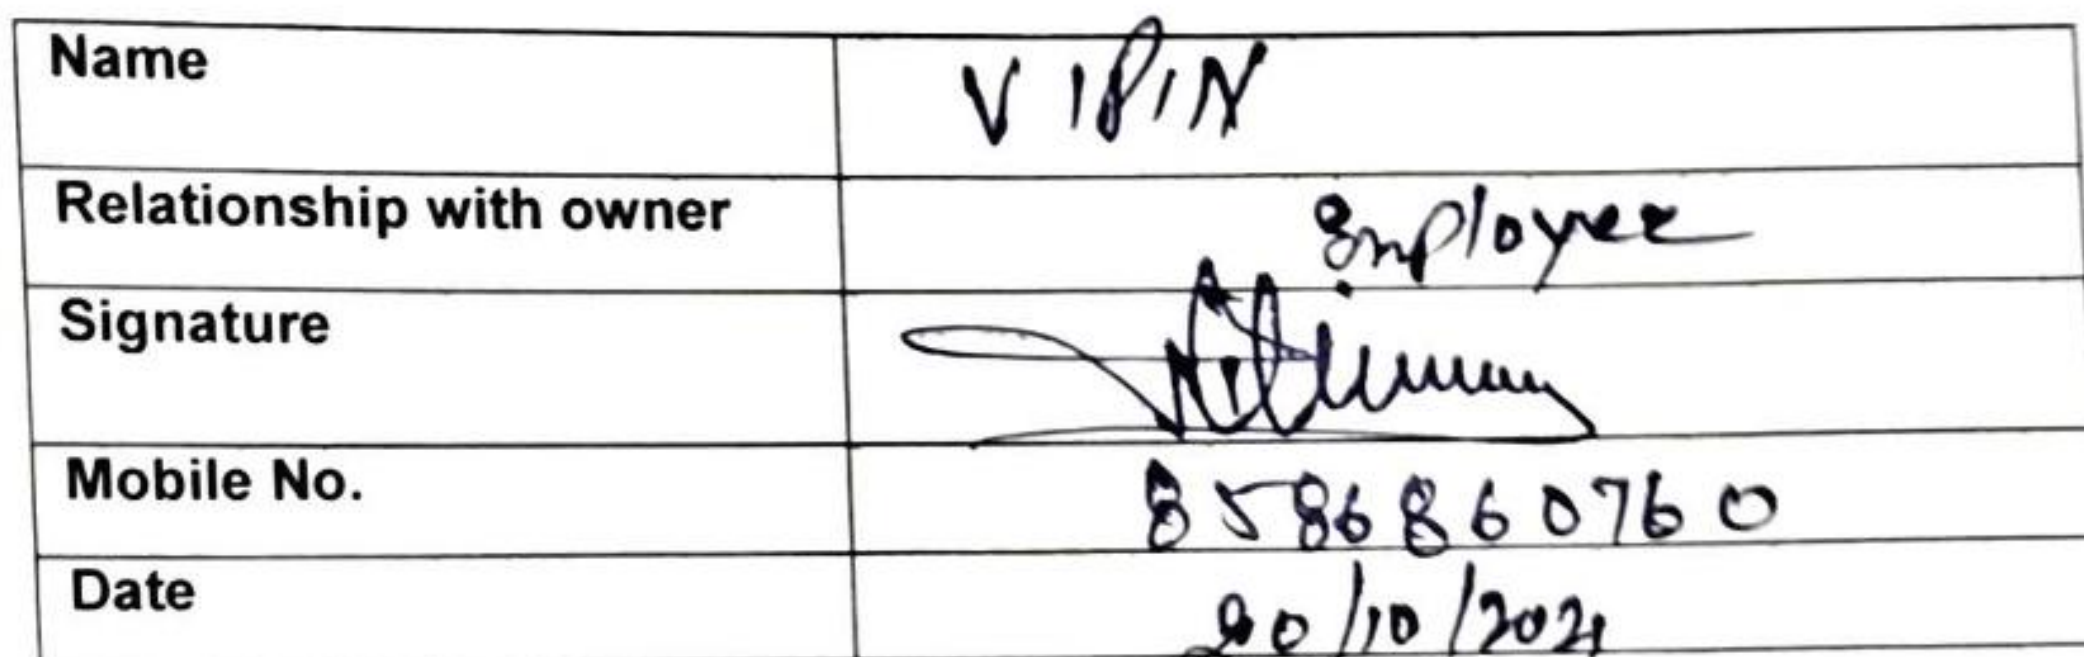 Name VIPIN
Relationship with owner Employee
Signature
Mobile No. 8586860760
Date 20/10/2021